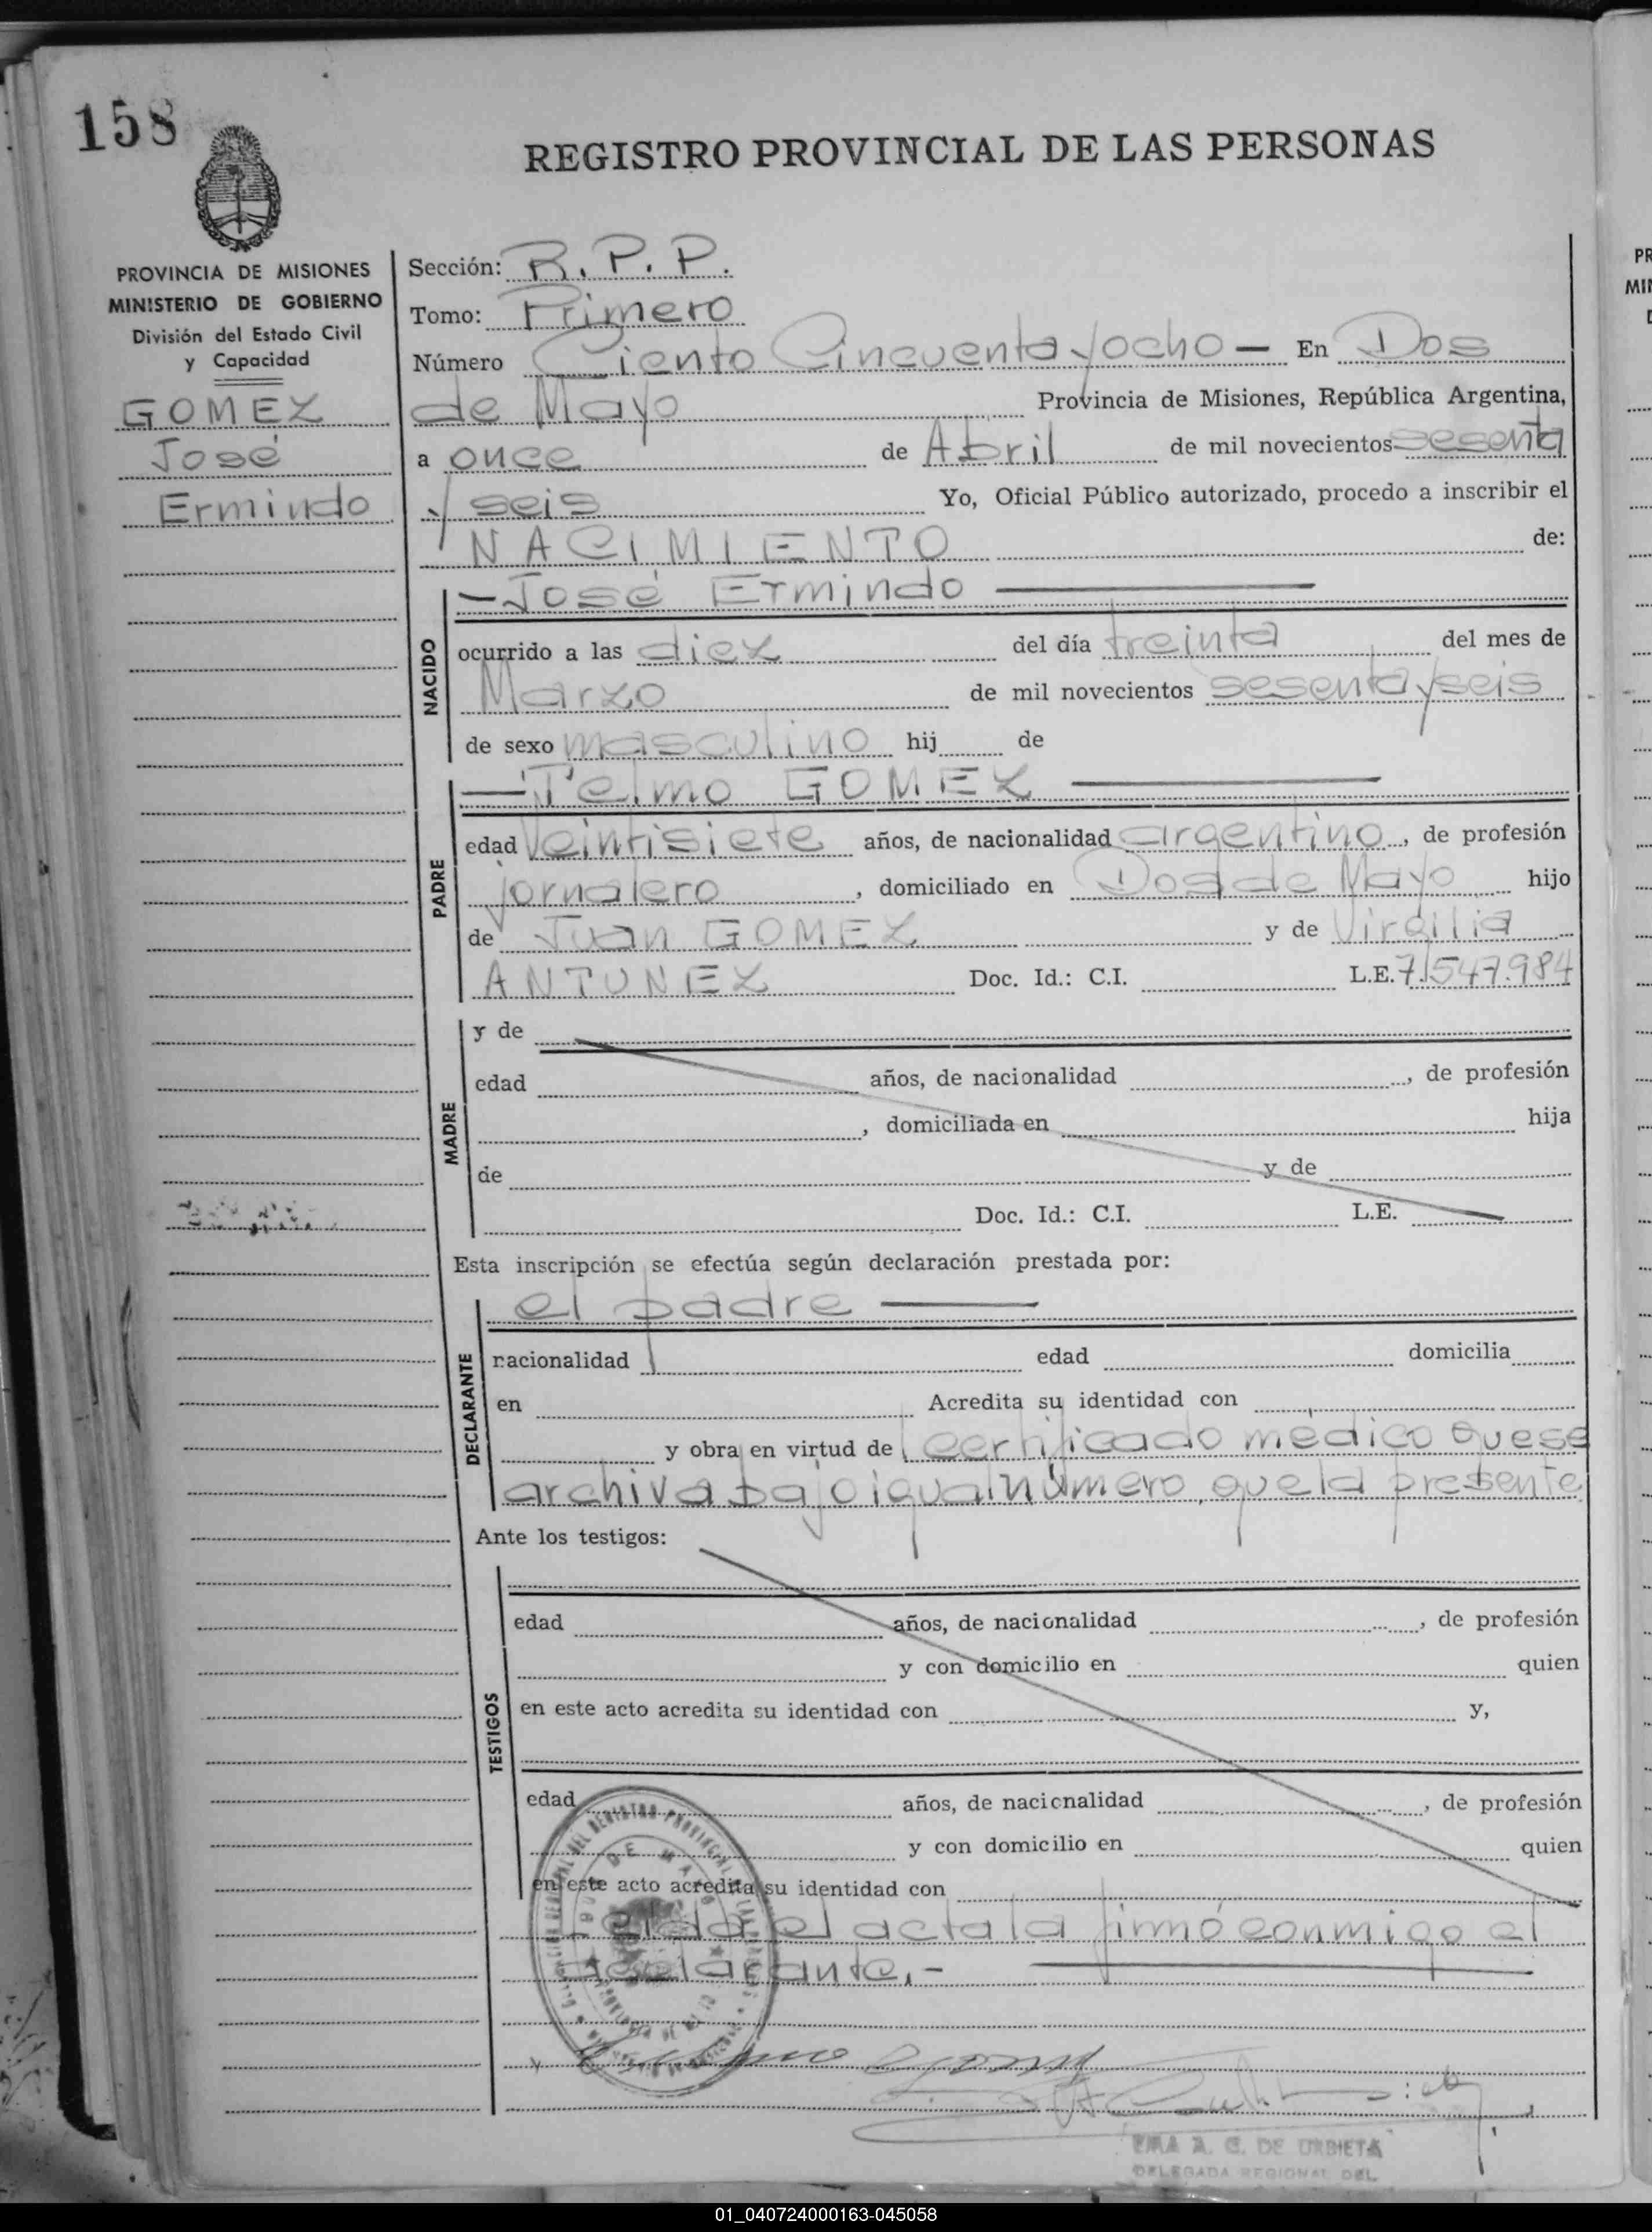 158
REGISTRO PROVINCIAL DE LAS PERSONAS
PROVINCIA DE MISIONES
MINISTERIO DE GOBIERNO
División del Estado Civil
y Capacidad
GOMEZ
José
Ermindo
Sección: R. P. P.
Tomo: Primero
Número Ciento Cincuenta y ocho — En Dos
de Mayo Provincia de Misiones, República Argentina,
a once de Abril de mil novecientos sesenta
y seis Yo, Oficial Público autorizado, procedo a inscribir el
NACIMIENTO de:
NACIDO
— José Ermindo —
ocurrido a las diez del día treinta del mes de
Marzo de mil novecientos sesenta y seis
de sexo masculino hij de
PADRE
— Telmo GOMEZ —
edad veintisiete años, de nacionalidad argentino, de profesión
jornalero, domiciliado en Dos de Mayo hijo
de Juan GOMEZ y de Virgilia
ANTUNEZ Doc. Id.: C.I. L.E. 7.547.984
MADRE
y de
edad años, de nacionalidad , de profesión
, domiciliada en hija
de y de
Doc. Id.: C.I. L.E.
Esta inscripción se efectúa según declaración prestada por:
DECLARANTE
el padre —
nacionalidad edad domicilia
en Acredita su identidad con
y obra en virtud de certificado médico que se
archiva bajo igual número que la presente
Ante los testigos:
TESTIGOS
edad años, de nacionalidad , de profesión
y con domicilio en quien
en este acto acredita su identidad con y,
edad años, de nacionalidad , de profesión
y con domicilio en quien
en este acto acredita su identidad con
Leida el acta la firmó conmigo el
declarante.-
A. C. DE URBIETA
DELEGADA REGIONAL DEL
01_040724000163-045058